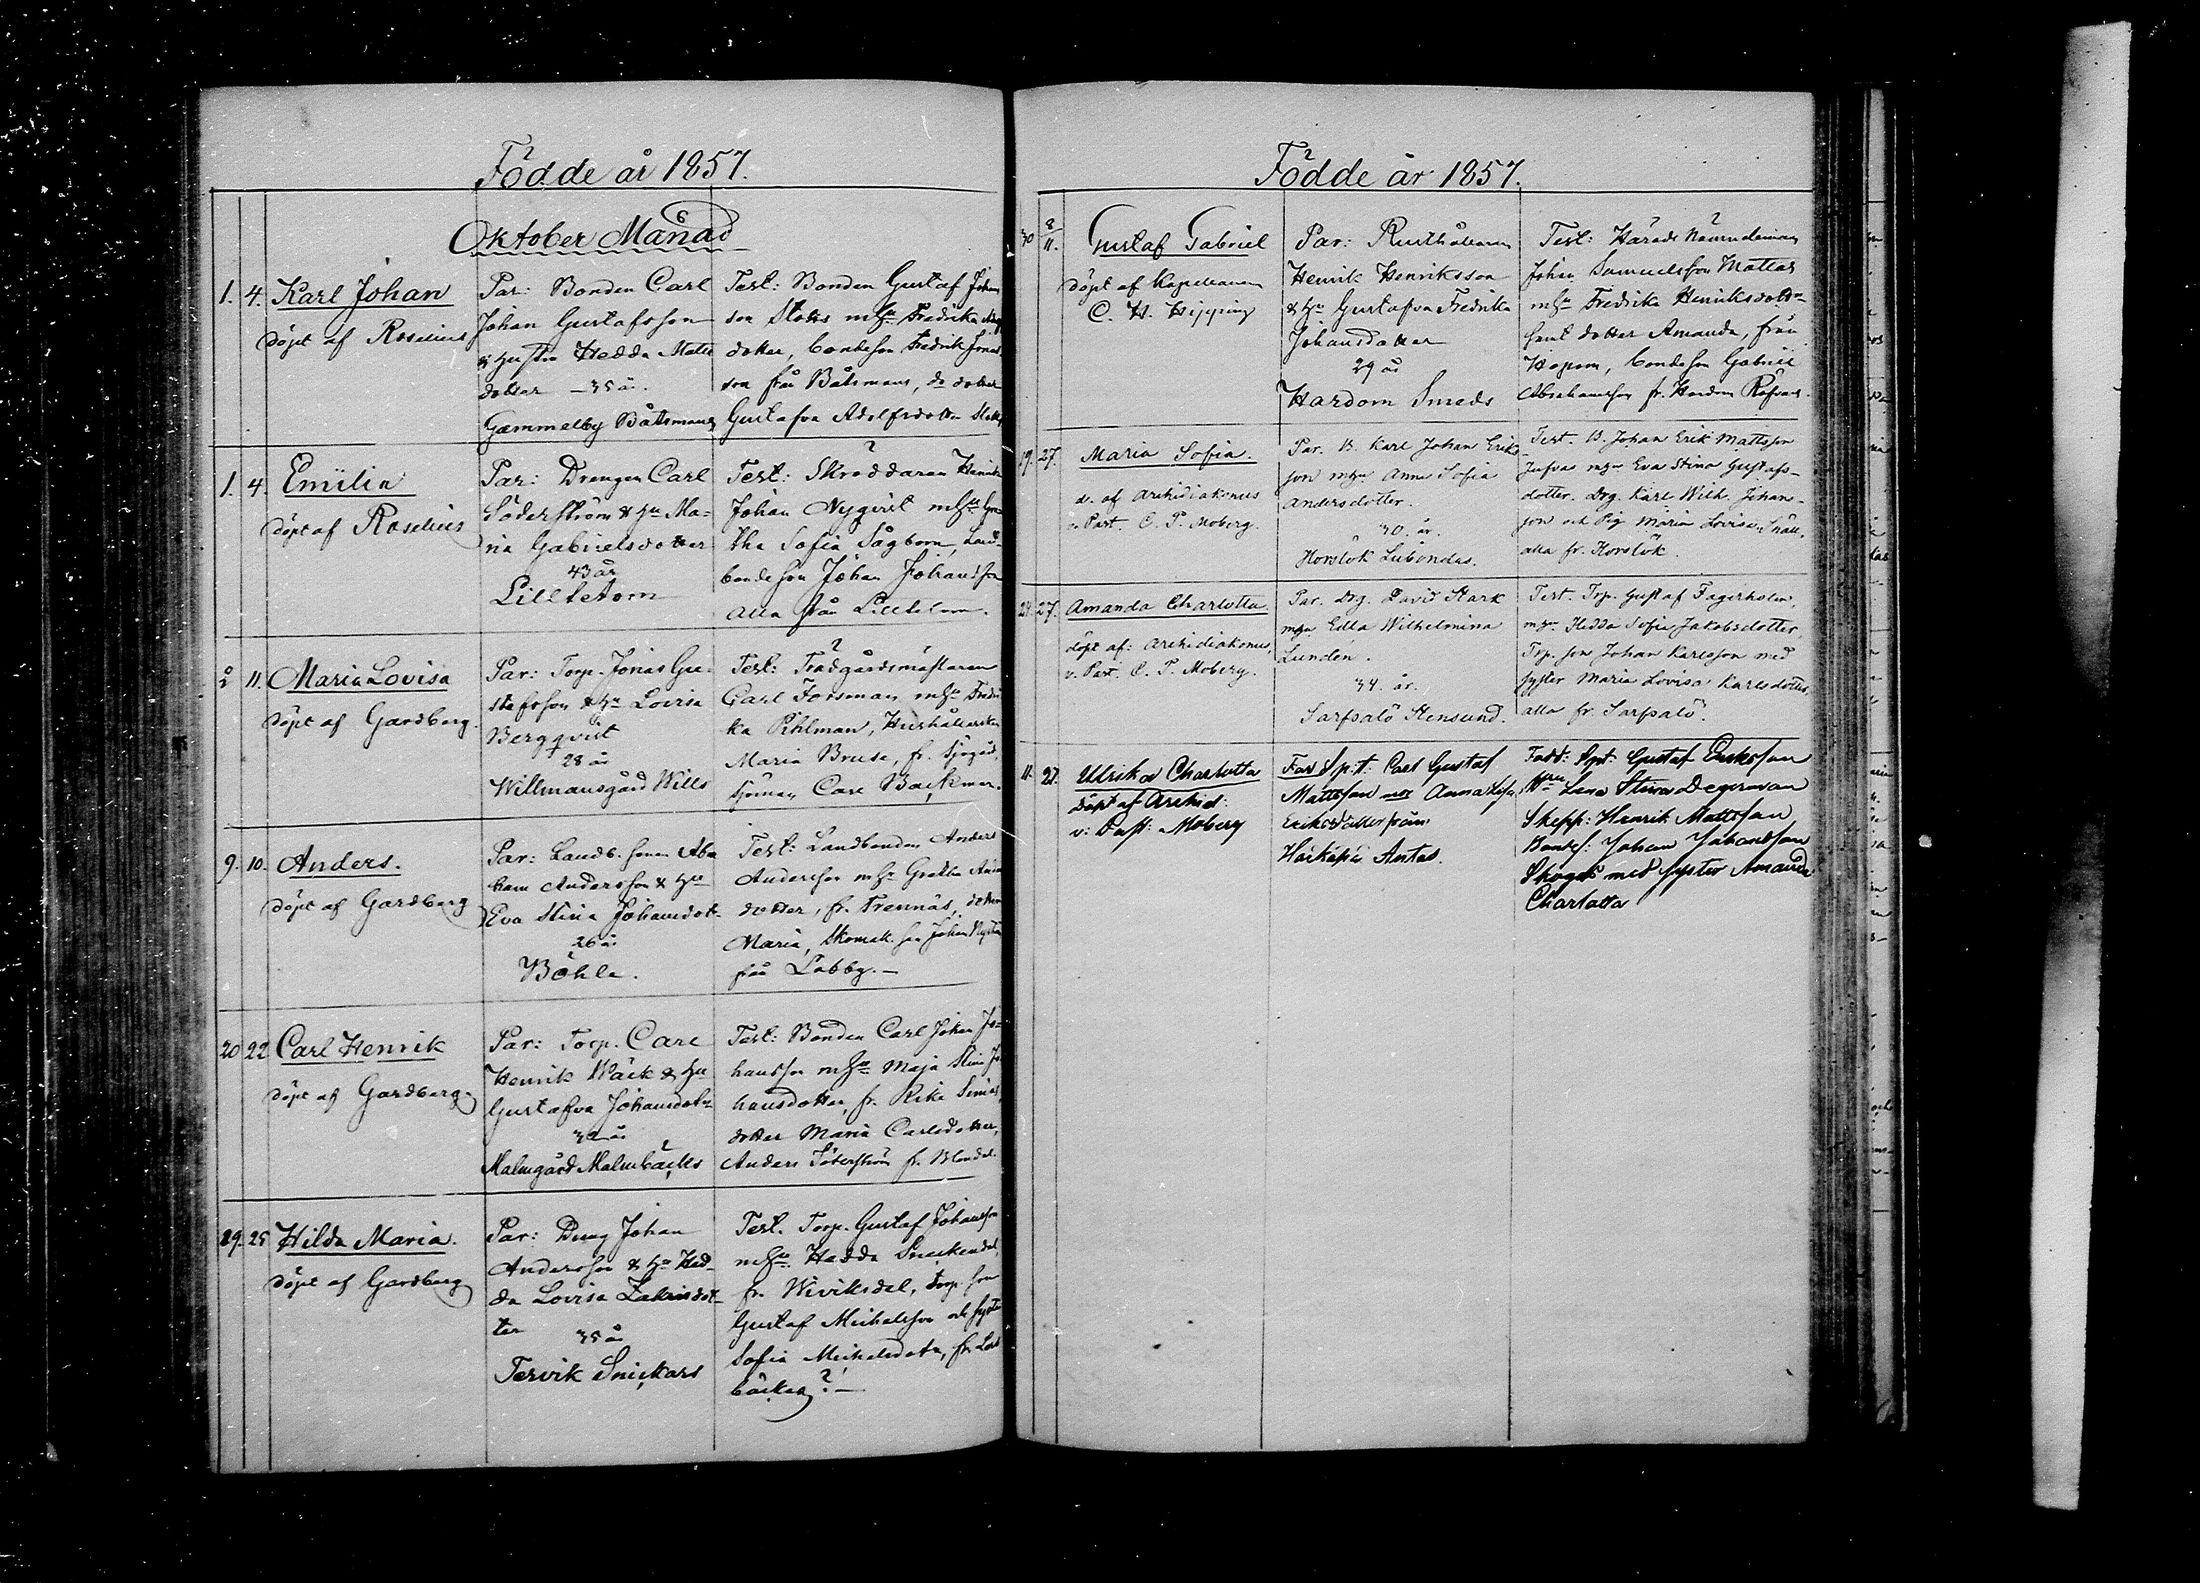 Födde år 1857.
Oktober Månad
1. 4. Karl Johan
döpt af Roselius
Par: Bonden Carl
Johan Gustafsson
& hustru Hedda Matts
dotter – 35 år.
Gammelby Båtsmans
Test: Bonden Gustaf Johans
son Stoks mhu Fredrika
dotter, bondeson Fredrik Jonas
son från Båtsmans, do dotter
Gustafva Adolfsdotter
1. 4. Emilia
döpt af Roselius
Par: Drengen Carl
Söderström & hu Ma-
ria Gabrielsdotter
43 år
Lilltetom
Test: Skreddaren Henrik
Johan Nyqvist mhu
Sofia Sågbom, Land-
bondeson Johan Johansson
alla från Lilltetom.
2 11. Maria Lovisa
döpt af Gardberg.
Par: Torp. Jonas Gu-
stafsson & hu Lovisa
Bergqvist
28 år
Willmansgård Wills
Test: Trädgårdsmästaren
Carl Forsman mhu Fredri
ka Pihlman, Hushållerskan
Maria Bruse, fr. Sjögård,
sjöman Carl Backman.
9. 10. Anders.
döpt af Gardberg
Par: Landb. sonen Abra
ham Andersson & hu
Eva Stina Johansdot-
26 år
Böhle.
Test: Landbonden Anders
Andersson mhu Gretha
dotter, fr. Trennäs, dotter
Maria, Skomak. son Johan
från Labby. –
20 22 Carl Henrik
döpt af Gardberg.
Par: Torp. Carl
Henrik Wäck & hu
Gustafva Johansdotr
32 år
Malmgård Malmbäcks
Test: Bonden Carl Johan Jo-
hansson mhu Maja Stina Jo
hansdotter, fr. Rike
dotter Maria Carlsdotter,
Anders Söderström fr.
29. 25 Hilda Maria.
döpt af Gardberg
Par: Dreng Johan
Andersson & hu Hed-
da Lovisa Zakrisdot-
ter 35 år
Tervik Snickars
Test. Torp. Gustaf Johansson
mhu Hedda
fr. Wiviksdal, Torp. son
Gustaf Michelsson och syster
Sofia Michelsdotr, fr.
backa? –
Födde år 1857.
30 8/11. Gustaf Gabriel
döpt af Kapellanen
C. H. Hipping
Par: Rusthållaren
Henrik Henriksson
& hu Gustafva Fredrika
Johansdotter
29 år
Hardom Smeds
Test: Härads Nämndeman
Johan Samuelsson Mattas
mhu Fredrika Henriksdotr
samt dotter Amanda, från
Hopom, bondeson Gabriel
Abrahamsson fr. Hardom Räfvars.
19. 27. Maria Sofia.
d. af Archidiakonus
v. Past. C. P. Moberg.
Par. B. Karl Johan Eriks-
son mhu Anna Sofia
Andersdotter.
30. år.
Horslök Lubondas.
Test. B. Johan Erik Mattsson
Jufvas mhu Eva Stina Gustafs-
dotter. Drg. Karl Wilh. Johans-
son och Pig Maria Lovisa Snäll,
alla fr. Horslök.
24. 27. Amanda Charlotta
döpt af: Archidiakonus,
v. Past. C. P. Moberg.
Par. Drg. David Stark
mhu Edla Wilhelmina
Lunden.
34. år.
Sarfsalö Stensund.
Test. Trp. Gustaf Fagerholm,
mhu. Hedda Sofia Jakobsdotter,
Trp. son Johan Karlsson med
syster Maria Lovisa Karlsdotter,
alla fr. Sarfsalö.
11. 27. Ulrika Charlotta
döpt af Archid:
v: Past: Moberg
Far Spt: Carl Gustaf
Mattsson mor Anna Lisa
Eriksdotter från
Härkäpää Antas.
Fadd: Spt: Gustaf Eriksson
Hrn Lena Stina Degerman
Skepp: Henrik Mattsson
Bondes: Johan Johansson
Skogas med syster Amanda
Charlotta